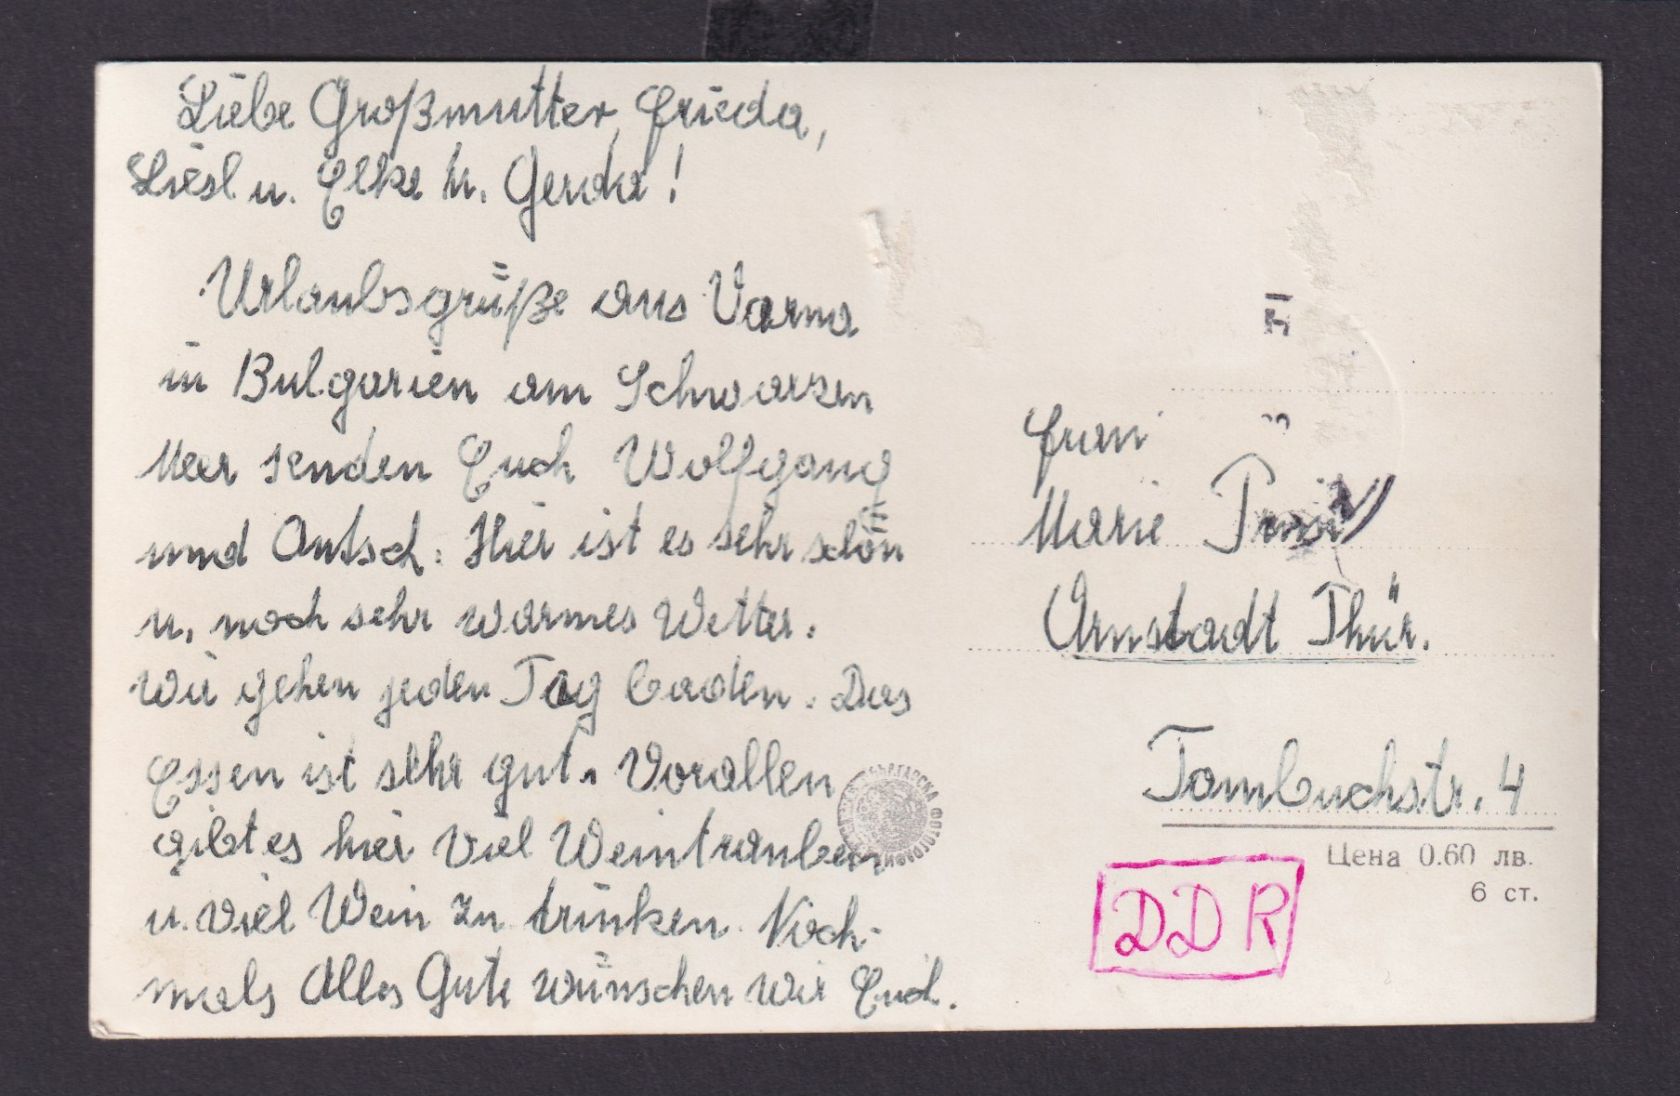 Liebe Großmutter, Frieda,
Liesl u. Elke u. Gerda!
Urlaubsgrüße aus Varna
in Bulgarien am Schwarzen
Meer senden Euch Wolfgang
und Antsch. Hier ist es sehr schön
u. noch sehr warmes Wetter.
Wir gehen jeden Tag baden. Das
Essen ist sehr gut. Vorallen
gibt es hier viel Weintrauben
u. viel Wein zu trinken. Noch-
mals Alles Gute wünschen wir Euch.
Frau
Marie
Arnstadt Thür.
Tambuchstr. 4
Цена 0.60 лв.
6 ст.
DDR